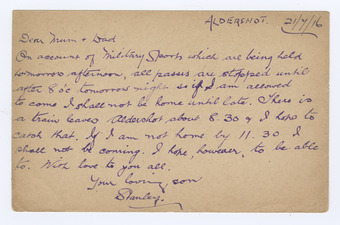 ALDERSHOT. 21/7/16
Dear Mum & Dad
On account of Military Sports which are being held
tomorrow afternoon, all passes are stopped until
after 8 o'c tomorrow night so if I am allowed
to come I shall not be home until late. There is
a train leaves Aldershot about 8.30 & I hope to
catch that. If I am not home by 11.30 I
shall not be coming. I hope, however, to be able
to. With love to you all.
Your loving son
Stanley.